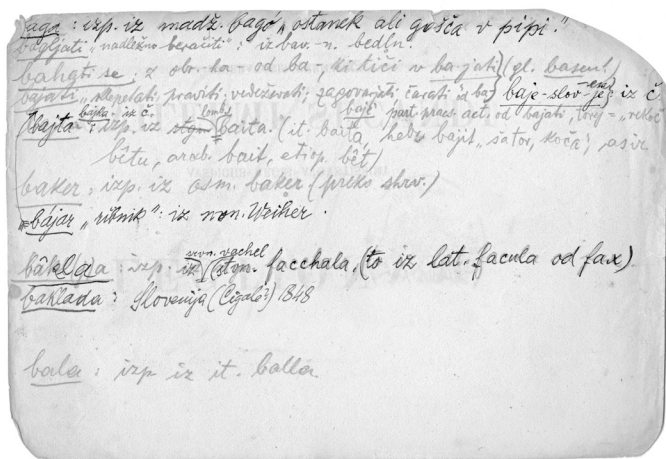 bago : izp. iz madž. bagó „ostanek ali gošča v pipi."
bagljati „nadležno beračiti" : iz bav.-n.
bahati se : z obr. -ha- od ba-, ki tiči v ba-jati (gl. basen!)
bajati „klepetati, praviti, vedeževati, zagovarjati, čarati
baje-slov-je iz č.
bajka : iz č.
bajta : izp. iz stgn. lomb. baita. (it. baita, hebr. bajit „šator, koča",
part. praes. act. od bajati, torej = „rekoč"
bêtu, arab. bait, etiop. bêt)
baker : izp. iz osm. baker (preko shrv.)
bájar „ribnik" : iz nvn. Weiher.
srvn. vachel
bâkla : izp. iz (stgn. facchala, (to iz lat. facula od fax)
baklada : Slovenija (Cigale?) 1848
bala : izp iz it. balla